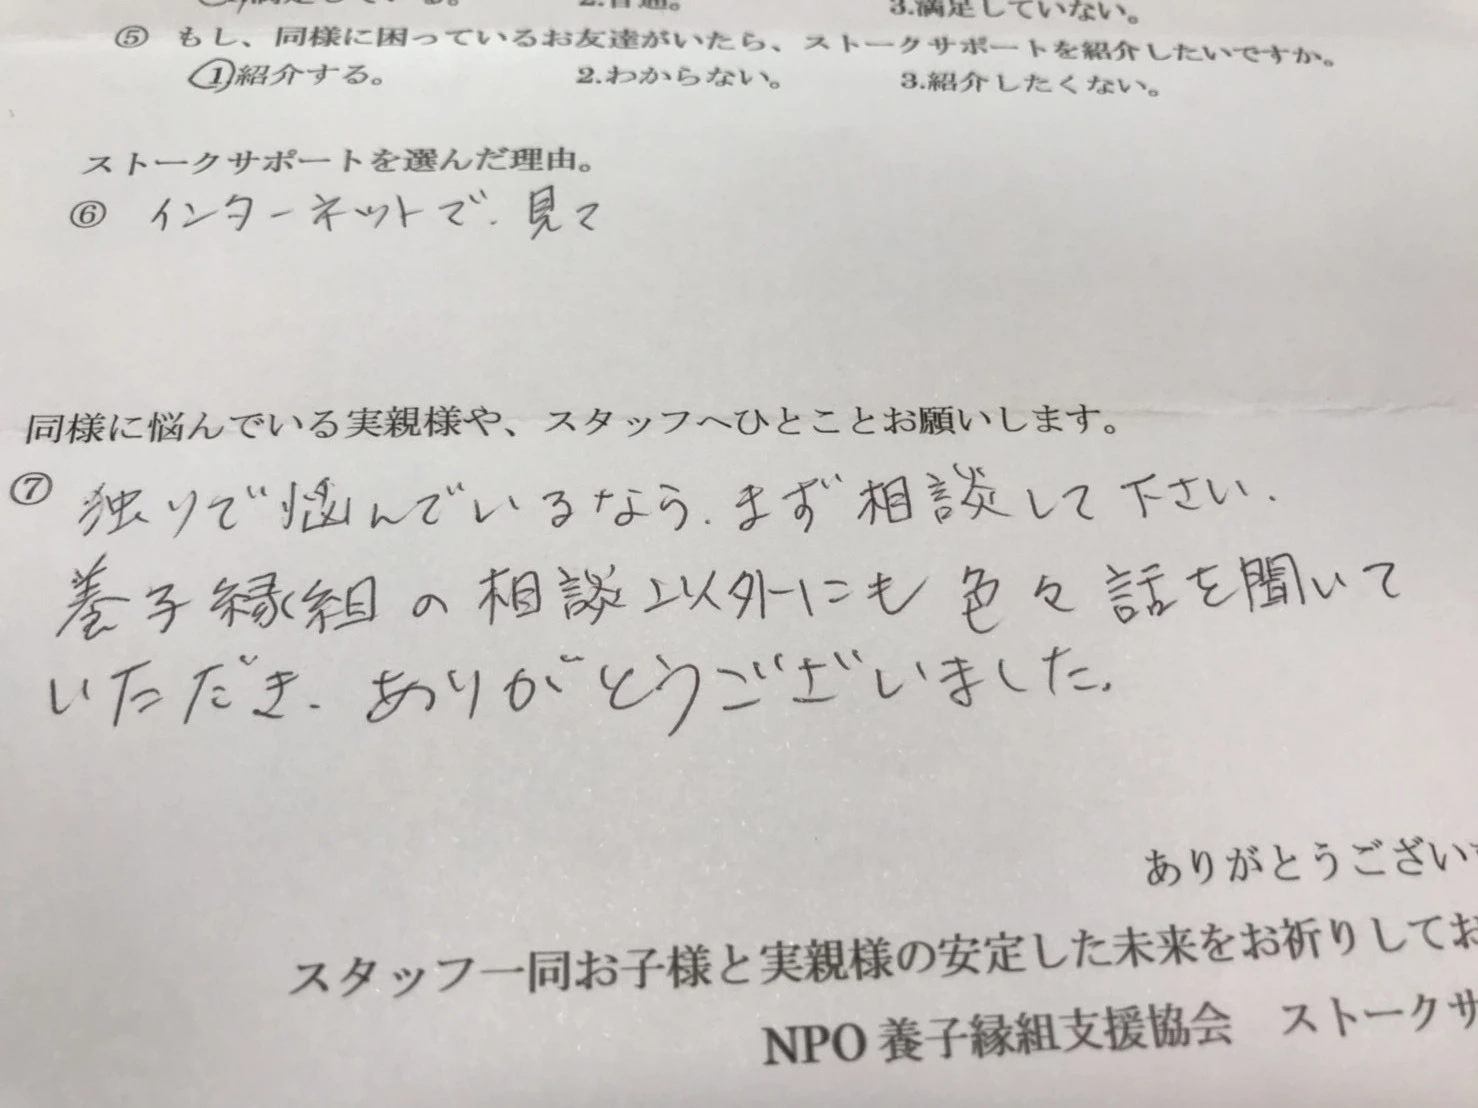 1.満足している。 2.普通。 3.満足していない。
⑤ もし、同様に困っているお友達がいたら、ストークサポートを紹介したいですか。
1紹介する。 2.わからない。 3.紹介したくない。
ストークサポートを選んだ理由。
⑥ インターネットで、見て
同様に悩んでいる実親様や、スタッフへひとことお願いします。
⑦ 独りで悩んでいるなら、まず相談して下さい.
養子縁組の相談以外にも色々話を聞いて
いただき、ありがとうございました。
ありがとうござい
スタッフ一同お子様と実親様の安定した未来をお祈りしてお
NPO 養子縁組支援協会 ストークサ